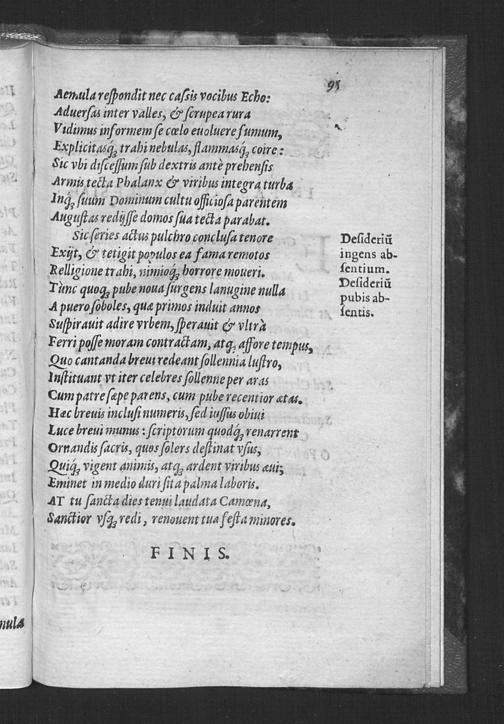 95
Aemula respondit nec cassis vocibus Echo:
Adversas inter valles, & scrupea rura
Vidimus informem se cœlo evolvere fumum,
Explicitasq́; trahi nebulas, flammasq́; coire:
Sic vbi discessum sub dextris antè prehensis
Armis tecta Phalanx & viribus integra turba
Inq́; suum Dominum cultu officiosa parentem
Augustas redijsse domos sua tecta parabat.
Sic series actus pulchro conclusa tenore
Exijt, & tetigit populos ea fama remotos
Relligione trahi, nimioq́; horrore moueri.
Tùnc quoq́; pube noua surgens lanugine nulla
A puero soboles, quæ primos induit annos
Suspirauit adire vrbem, sperauit & vltrà
Ferri posse moram contractam, atq́; affore tempus,
Quo cantanda breui redeant sollennia lustro,
Instituant vt iter celebres sollenne per aras
Cum patre sæpe parens, cum pube recentior ætas.
Hæc brevuis inclusi numeris, sed iussus obiui
Luce breui munus: scriptorum quodq́; renarrent
Ornandis sacris, quos solers destinat vsus,
Quiq́; vigent animis, atq́; ardent viribus æui;
Eminet in medio duri sita palma laboris.
AT tu sancta dies tenui laudata Camœna,
Sanctior vsq́; redi, renouent tua festa minores.
FINIS.
Desideriũ
ingens ab-
sentium.
Desideriũ
pubis ab-
sentis.
mula